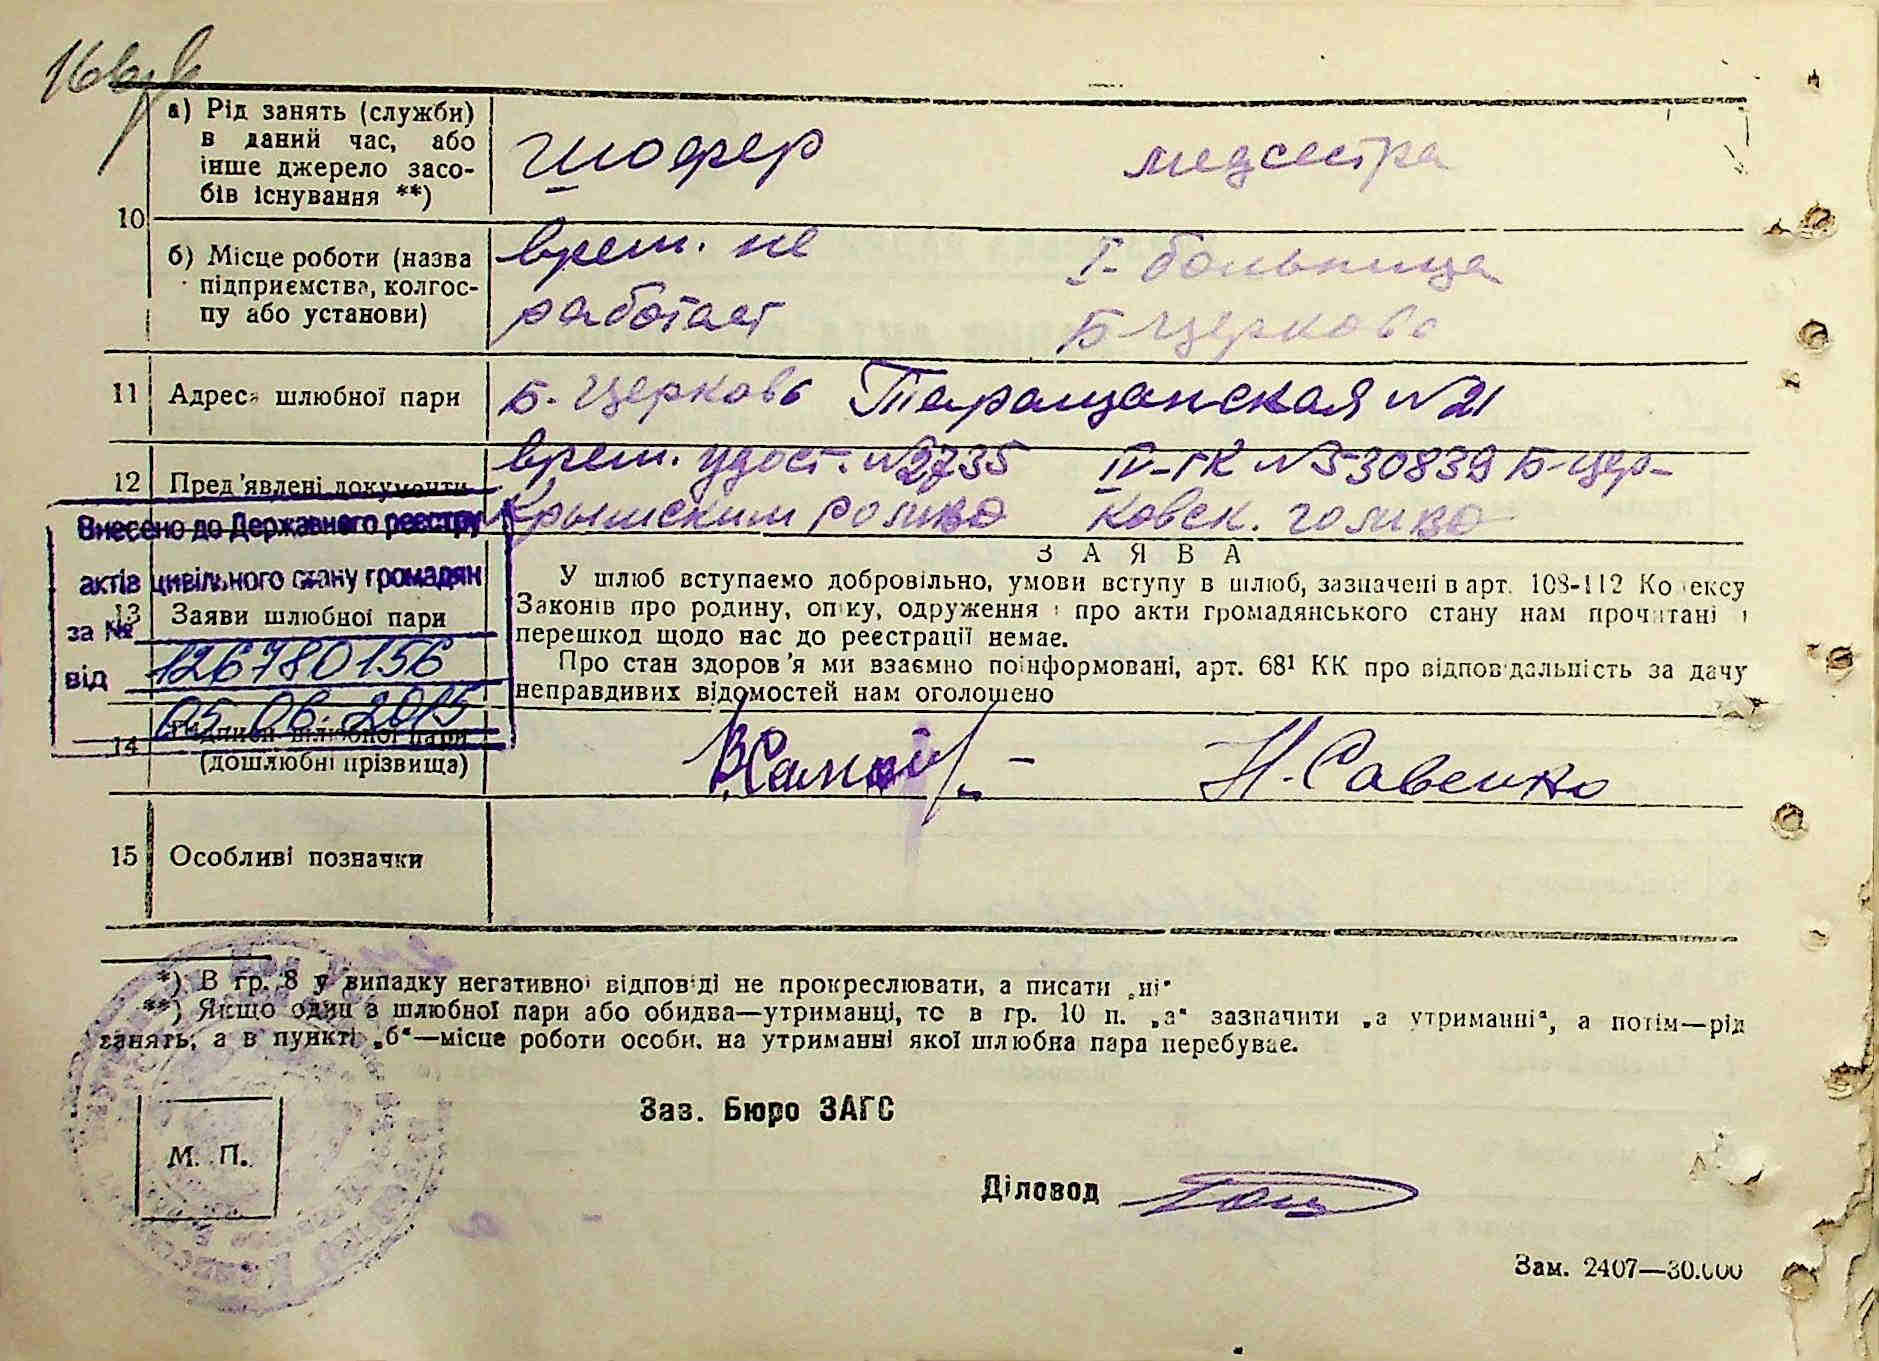 а) Рід занять (служби) в даний час, або інше джерело засобів існування **)
шофер
медсестра
10
б) Місце роботи (назва підприємства, колгоспу або установи)
врем. не
работает
I- больница
Б-Церковь
11 Адреса шлюбної пари
Б. Церковь Таращанская №21
12 Пред'явлені документи
врем. удост. №2735
Крымским
IV-ГК №530839 Б-Цер-
ковск.
Внесено до Державного реєстру
актів цивільного стану громадян
за №
126780156
від
05. 06. 2015
13 Заяви шлюбної пари
З А Я В А
У шлюб вступаємо добровільно, умови вступу в шлюб, зазначені в арт. 108-112 Кодексу
Законів про родину, опіку, одруження і про акти громадянського стану нам прочитані і
перешкод щодо нас до реєстрації немає.
Про стан здоров'я ми взаємно поінформовані, арт. 68¹ КК про відповідальність за дачу
неправдивих відомостей нам оголошено
14 Підписи шлюбної пари
(дошлюбні прізвища)
Н. Савенко
15 Особливі позначки
*) В гр. 8 у випадку негативної відповіді не прокреслювати, а писати „ні“
**) Якщо один з шлюбної пари або обидва—утриманці, то в гр. 10 п. „а“ зазначити „а утриманні“, а потім—рід
занять, а в пункті „б“—місце роботи особи, на утриманні якої шлюбна пара перебуває.
Заз. Бюро ЗАГС
М. П.
Діловод
Зам. 2407—30.000